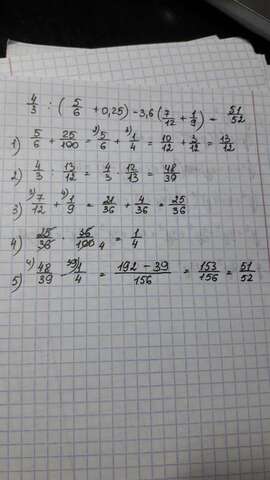 4/3 : (5/6 + 0,25) - 3,6 (7/12 + 1/9) = 51/52
1) 5/6 + 25/100 = 2) 5/6 + 3) 1/4 = 10/12 + 3/12 = 13/12
2) 4/3 : 13/12 = 4/3 · 12/13 = 48/39
3) 3) 7/12 + 4) 1/9 = 21/36 + 4/36 = 25/36
4) 25/36 · 36/100 4 = 1/4
5) 4) 48/39 - 39) 1/4 = 192 - 39/156 = 153/156 = 51/52